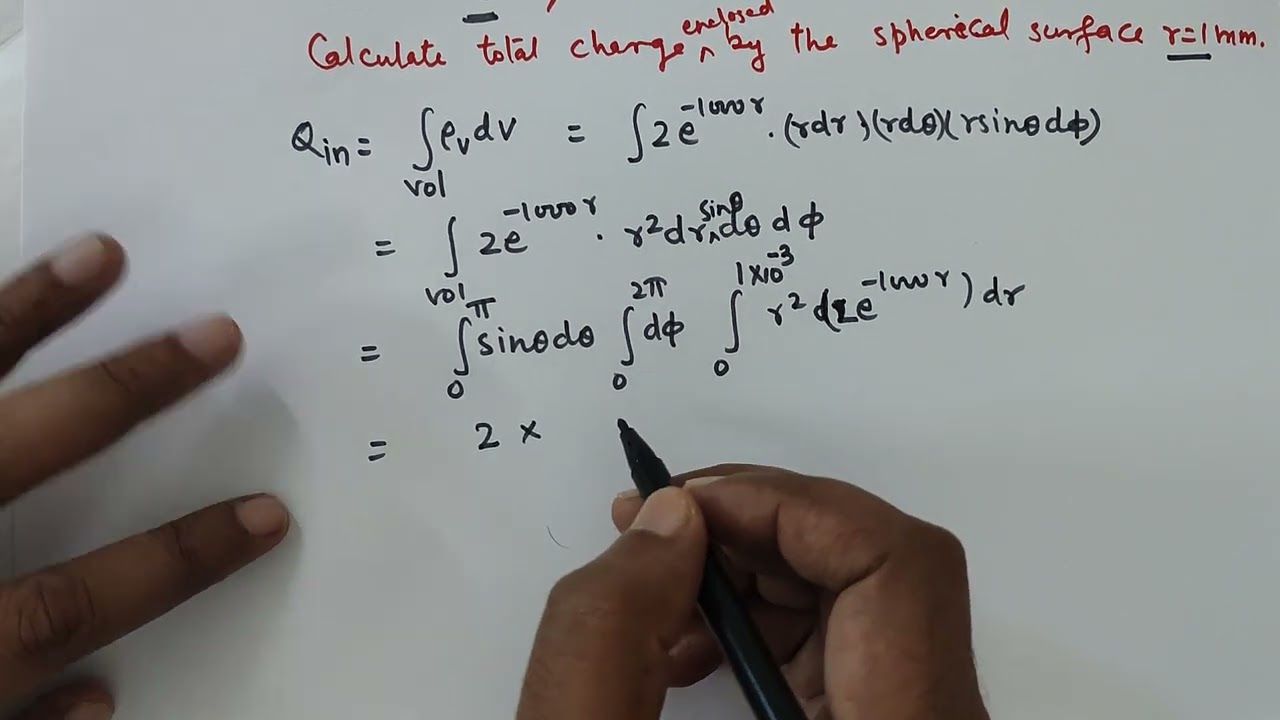 Calculate total charge enclosed by the spherical surface r=1mm.
Qin = ∫vol ρv dv = ∫2e^-1000r . (rdr)(rdθ)(rsinθdϕ)
= ∫vol 2e^-1000r . r²dr sinθ dθ dϕ
= ∫0^π sinθdθ ∫0^2π dϕ ∫0^1×10^-3 r² (2e^-1000r) dr
= 2 ×